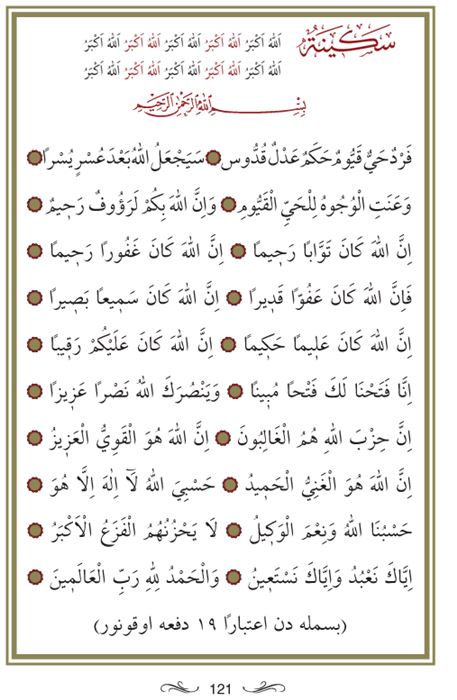 سَكِينَةٌ
اَللهُ اَكْبَرُ اَللهُ اَكْبَرُ اَللهُ اَكْبَرُ اَللهُ اَكْبَرُ اَللهُ اَكْبَرُ
اَللهُ اَكْبَرُ اَللهُ اَكْبَرُ اَللهُ اَكْبَرُ اَللهُ اَكْبَرُ اَللهُ اَكْبَرُ
بِسْمِ اللهِ الرَّحْمٰنِ الرَّحِيمِ
فَرْدٌ حَيٌّ قَيُّومٌ حَكَمٌ عَدْلٌ قُدُّوس سَيَجْعَلُ اللهُ بَعْدَ عُسْرٍ يُسْرًا
وَعَنَتِ الْوُجُوهُ لِلْحَيِّ الْقَيُّومِ وَاِنَّ اللهَ بِكُمْ لَرَؤُوفٌ رَحِيمٌ
اِنَّ اللهَ كَانَ تَوَّابًا رَحِيمًا اِنَّ اللهَ كَانَ غَفُورًا رَحِيمًا
فَاِنَّ اللهَ كَانَ عَفُوًّا قَدِيرًا اِنَّ اللهَ كَانَ سَمِيعًا بَصِيرًا
اِنَّ اللهَ كَانَ عَلِيمًا حَكِيمًا اِنَّ اللهَ كَانَ عَلَيْكُمْ رَقِيبًا
اِنَّا فَتَحْنَا لَكَ فَتْحًا مُبِينًا وَيَنْصُرَكَ اللهُ نَصْرًا عَزِيزًا
اِنَّ حِزْبَ اللهِ هُمُ الْغَالِبُونَ اِنَّ اللهَ هُوَ الْقَوِيُّ الْعَزِيزُ
اِنَّ اللهَ هُوَ الْغَنِيُّ الْحَمِيدُ حَسْبِيَ اللهُ لَآ اِلٰهَ اِلَّا هُوَ
حَسْبُنَا اللهُ وَنِعْمَ الْوَكِيلُ لَا يَحْزُنُهُمُ الْفَزَعُ الْاَكْبَرُ
اِيَّاكَ نَعْبُدُ وَاِيَّاكَ نَسْتَعِينُ وَالْحَمْدُ لِلهِ رَبِّ الْعَالَمِينَ
(بسمله دن اعتبارًا ١٩ دفعه اوقونور)
121